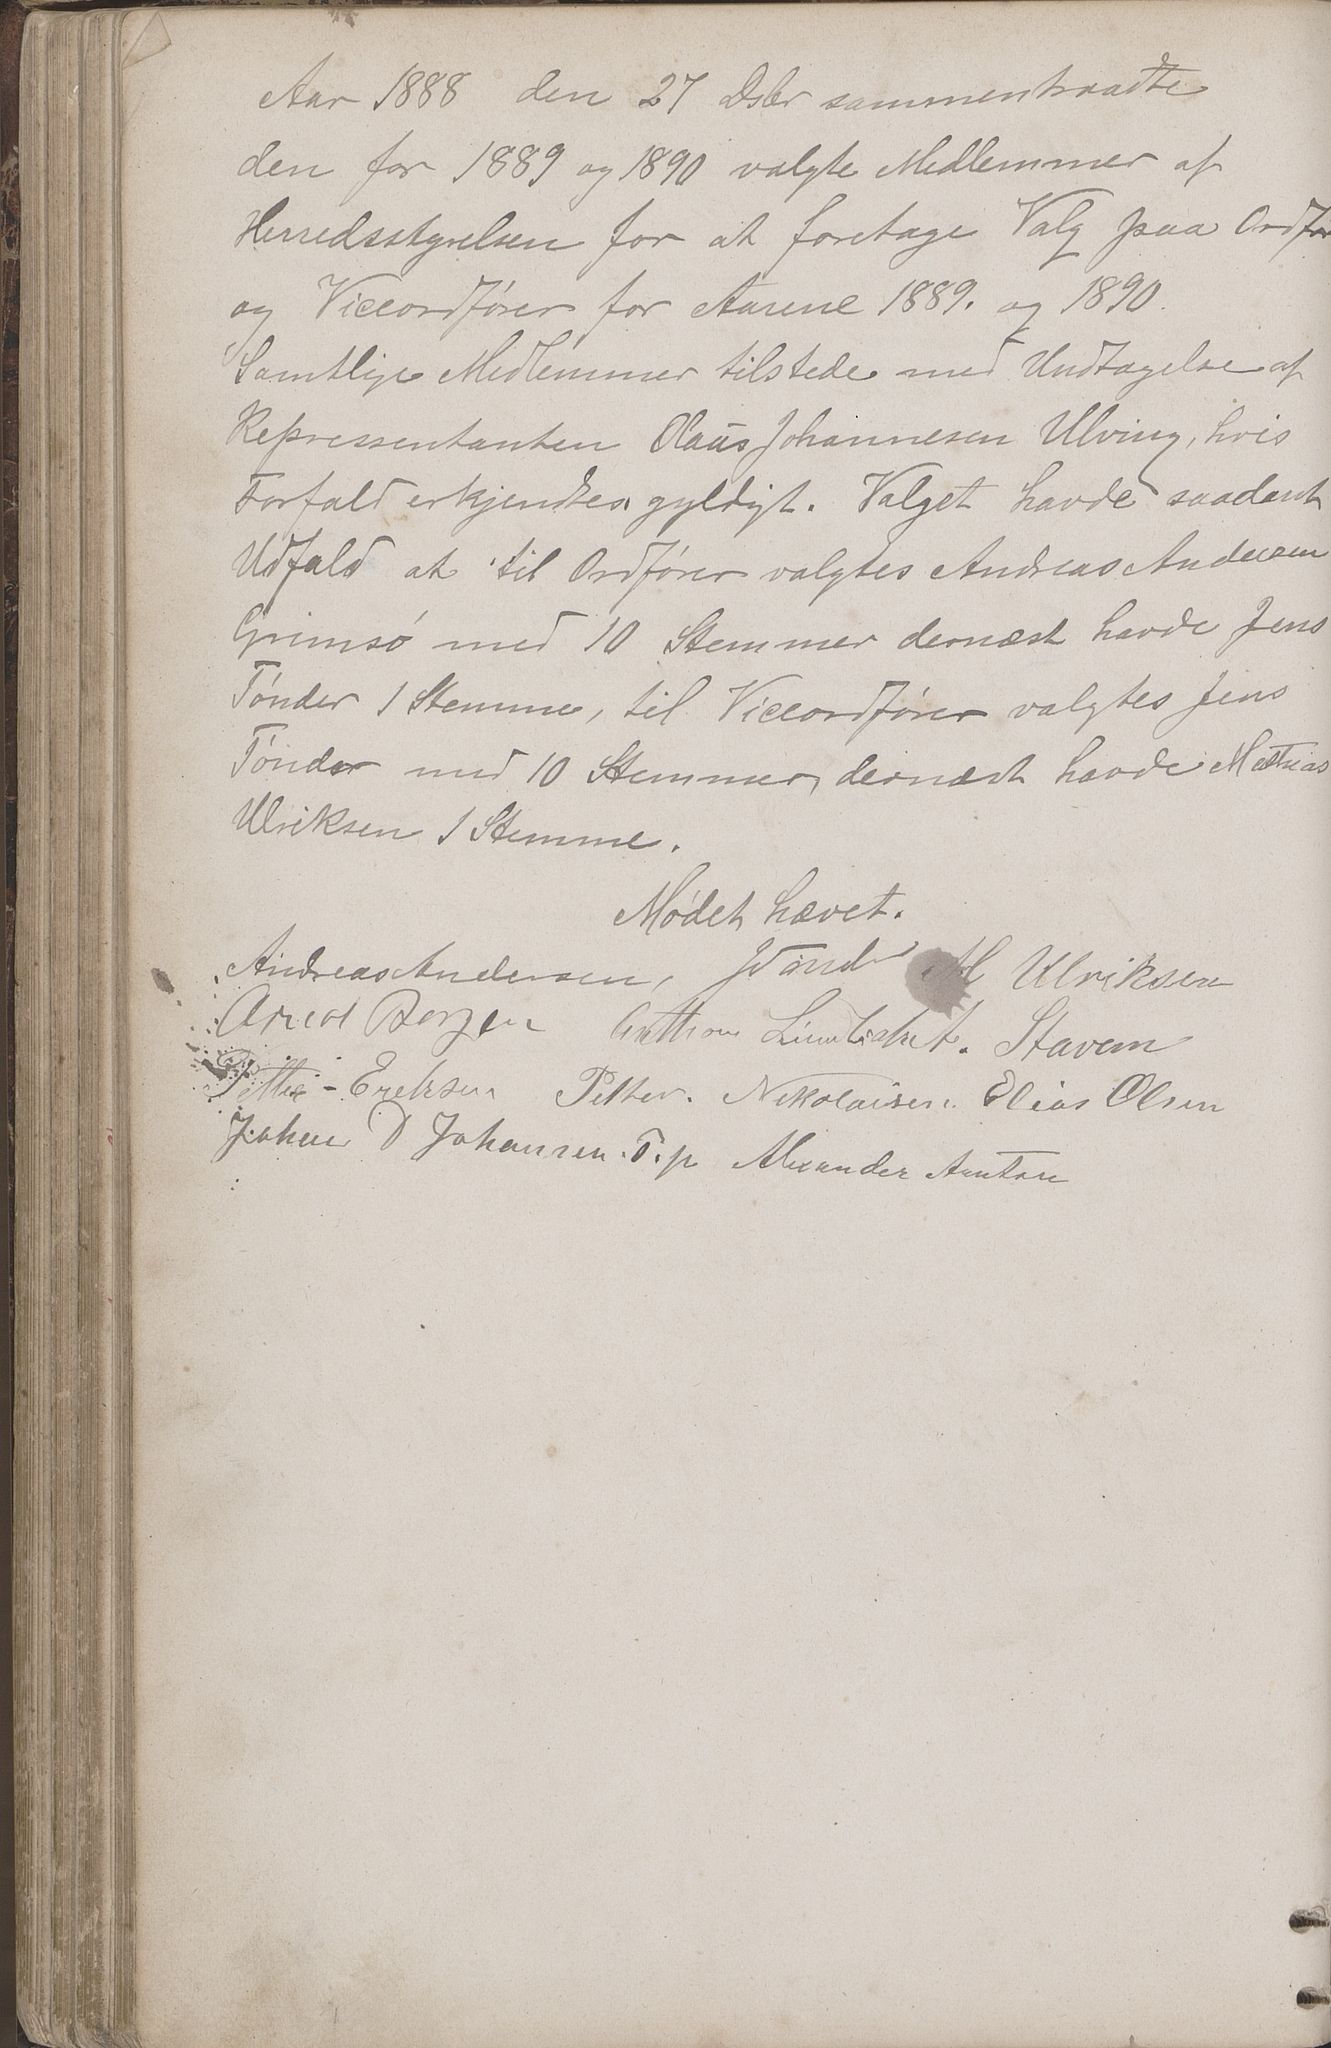 Aar 1888 den 27 Dsbr sammentraadte
den for 1889 og 1890 valgte Medlemmer af
Herredsstyrelsen for at foretage Valg paa Ordfør
og Viceordfører for Aarene 1889. og 1890.
Samtlige Medlemmer tilstede med Undtagelse af
Repressentanten Olaus Johannesen Ulving, hvis
Forfald erkjendtes gyldigt. Valget havde saadant
Udfald at til Ordfører valgtes Andreas Andersen
Grimsø med 10 Stemmer dernæst havde Jens
Tønder 1 Stemme, til Viceordfører valgtes Jens
Tønder med 10 Stemmer, dernæst havde Mathias
Ulriksen 1 Stemme.
Mødet hævet.
Andreas Andersen, J Tønder M Ulriksen
Borgen Anthon A. Stavem
Petter - Eriksen Petter. Nikolaisen. Elias Olsen
Johan D Johansen. T.p Alexander